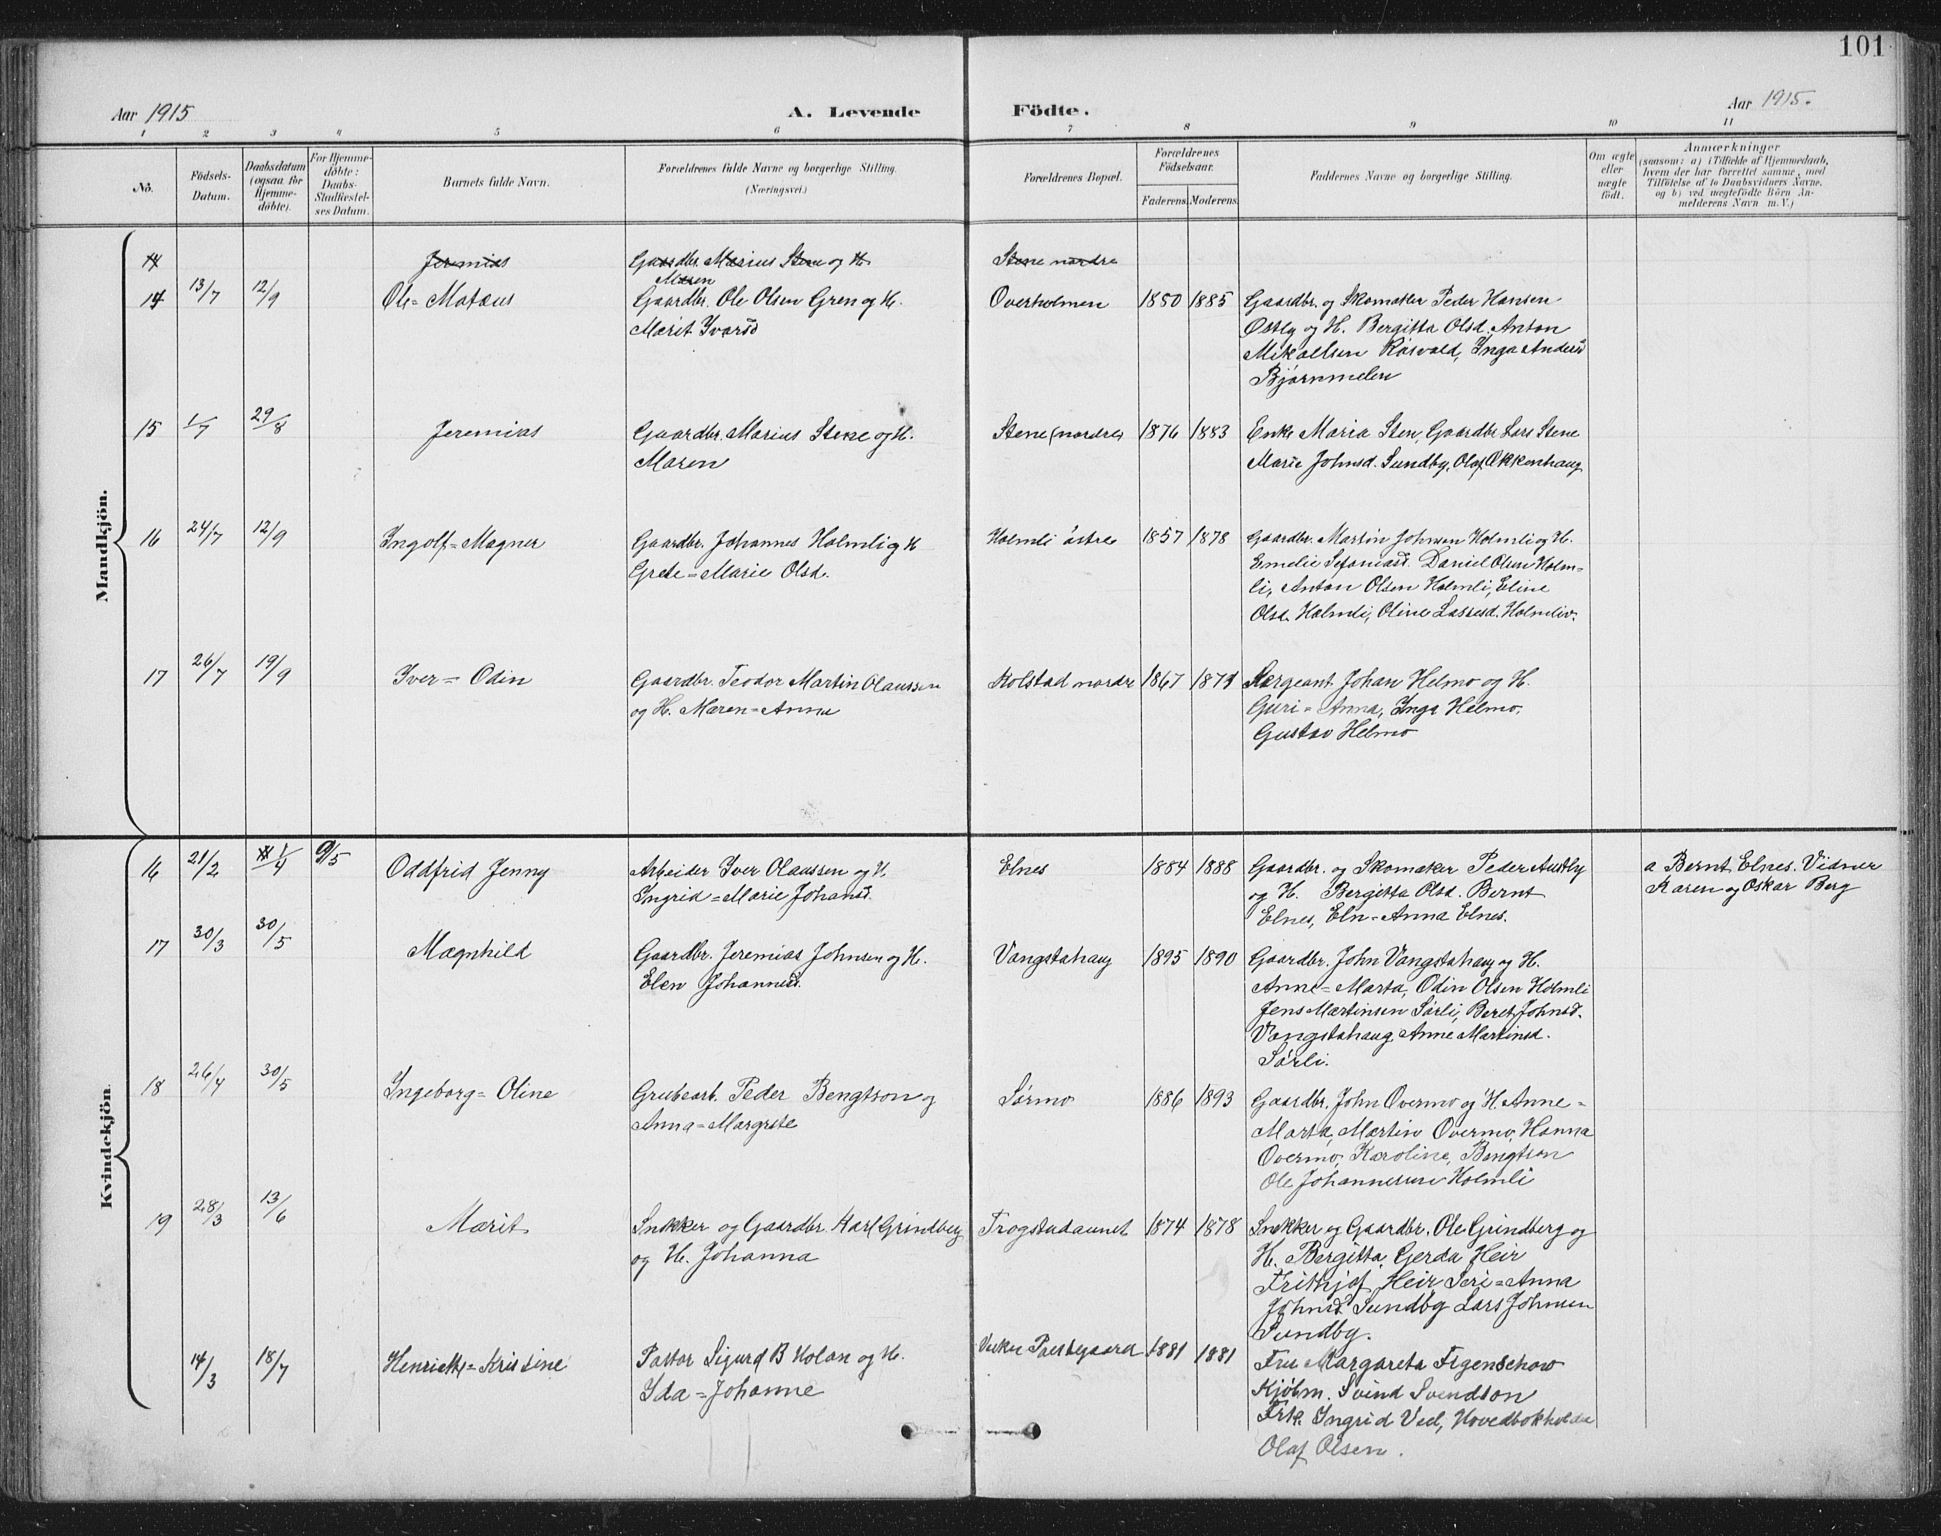 101
Aar 1915
A. Levende
Födte.
Aar 1915.
1 2 3 4 5 6 7 8 9 10 11
No.
Födsels-
Datum.
Daabsdatum
(ogsaa for
Hjemme-
döbte).
For Hjemme-
döbte:
Daabs-
Stadfæstel-
ses Datum.
Barnets fulde Navn.
Forældrenes fulde Navne og borgerlige Stilling.
(Næringsvei.)
Forældrenes Bopæl.
Forældrenes
Födselsaar.
Faderens. Moderens.
Faddernes Navne og borgerlige Stilling.
Om ægte
eller
uægte
födt.
Anmærkninger
(saasom: a) i Tilfælde af Hjemmedaab,
hvem der har forrettet samme, med
Tilföielse af to Daabsvidners Navne,
og b) ved uægtefödte Börn An-
melderens Navn m. V.)
Mandkjön.
14 Jeremias Gaardbr. Marius Stene og H. Stene nordre
Maren
14 13/7 12/9 Ole=Mataus Gaardbr. Ole Olsen Gren og H. Overholmen 1850 1885 Gaardbr. og Skomaker Peder Hansen
Marit Ivarsd Østby og H. Bergitta Olsd. Anton
Mikaelsen Rosvold, Inga Andersd
Bjørnmelen
15 1/7 29/8 Jeremias Gaardbr. Marius Stene og H. Stene (nordre) 1876 1883 Enke Maria Sten, Gaardbr Lars Stene
Maren Marie Johnsd. Sundby, Olaf Okkenhaug
16 24/7 12/9 Ingolf=Magner Gaardbr. Johannes Holmli og H Holmli östre 1857 1878 Gaardbr. Martin Johnsen Holmli og H.
Grete=Marie Olsd. Emelie Sefaniasd. Daniel Olsen Holm-
li, Anton Olsen Holmli, Eline
Olsd. Holmli, Oline Lassesd. Holmliv.
17 26/7 19/9 Iver=Odin Gaardbr. Teodor Martin Olaussen Kolstad nordre 1867 1871 Sergeant Johan Helmo og H.
og H. Maren=Anna Guri=Anna, Inga Helmo,
Gustav Helmo
Kvindekjön.
16 21/2 1/4 9/5 Oddfrid Jenny Arbeider Iver Olaussen og H. Elnes 1884 1888 Gaardbr. og Skomaker Peder Austby a Bernt Elnes. Vidner
Ingrid=Marie Johansd. og H. Bergitta Olsd. Bernt Karen og Oskar Berg
Elnes, Eln=Anna Elnes.
17 30/3 30/5 Magnhild Gaardbr. Jeremias Johnsen og H. Vangstahaug 1895 1890 Gaardbr. John Vangstahaug og H.
Elen Johannesd. Anne=Marta, Odin Olsen Holmli
Jens Martinsen Sørli, Beret Johnsd.
Vangstahaug Anne Martinsd.
Sørli.
18 26/4 30/5 Ingeborg=Oline Grubearb. Peder Bengtson og Sørmo 1886 1893 Gaardbr. John Overmo og H. Anne=
Anna=Margrete Marta, Martin Overmo, Hanna
Overmo, Karoline, Bengtson
Ole Johannessen Holmli
19 28/3 13/6 Marit Snekker og Gaardbr. Karl Grindberg Trogstadaunet 1874 1878 Snekker og Gaardbr. Ole Grindberg og
og H. Johanna H. Bergitta, Gerda Heir
Frithjof Heir Seri=Anna
Johnsd Sundby Lars Johnsen
Sundby.
14/3 18/7 Henriette=Kristine Pastor Sigurd B Holan og H. Prestegaard 1881 1881 Fru Margareta Figenschow
Ida=Johanne Kjøbm. Svend Svendson
Frk. Ingrid Veel, Hovedbokholder
Olaf Olsen.